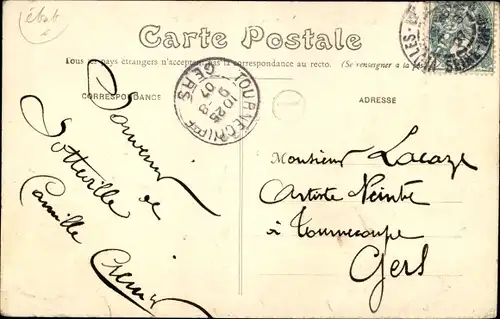 ébab
Carte Postale
Tous les pays étrangers n'acceptent pas la correspondance au recto. (Se renseigner à la poste)
CORRESPONDANCE
ADRESSE
TOURNECOUPE
GERS
Souvenir
de
Sotteville
Camille
Monsieur Lacaze
Artiste Peintre
à Tournecoupe
Gers